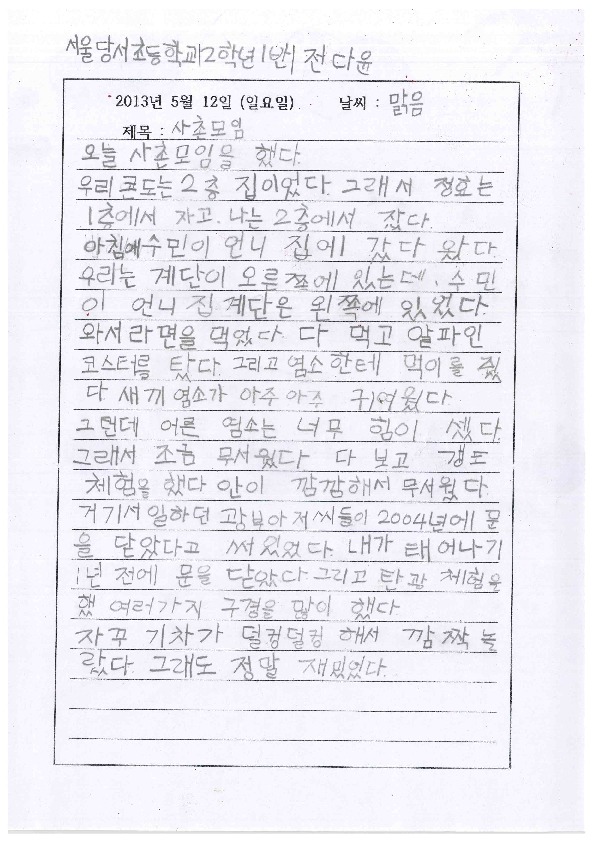 서울당서초등학교2학년1반 전다윤
2013년 5월 12일 (일요일) 날씨 : 맑음
제목 : 사촌모임
오늘 사촌모임을 했다.
우리콘도는 2층 집이었다. 그래서 정호는
1층에서 자고. 나는 2층에서 잤다.
아침에수민이 언니 집에 갔다 왔다.
우리는 계단이 오른쪽에 있는데, 수민
이 언니집계단은 왼쪽에 있었다.
와서라면을 먹었다. 다 먹고 알파인
코스터를 탔다. 그리고염소한테 먹이를 줬
다 새끼염소가 아주 아주 귀여웠다.
그런데 어른 염소는 너무 힘이 셌다.
그래서 조금 무서웠다 다 보고 갱도
체험을 했다 안이 깜깜해서 무서웠다.
거기서일하던 광부아저씨들이 2004년에 문
을 닫았다고 써있었다. 내가 태어나기
1년 전에 문을 닫았다 그리고 탄광 체험을
했 여러가지 구경을 많이 했다
자꾸 기차가 덜컹덜컹 해서 깜짝 놀
랐다. 그래도 정말 재밌었다.